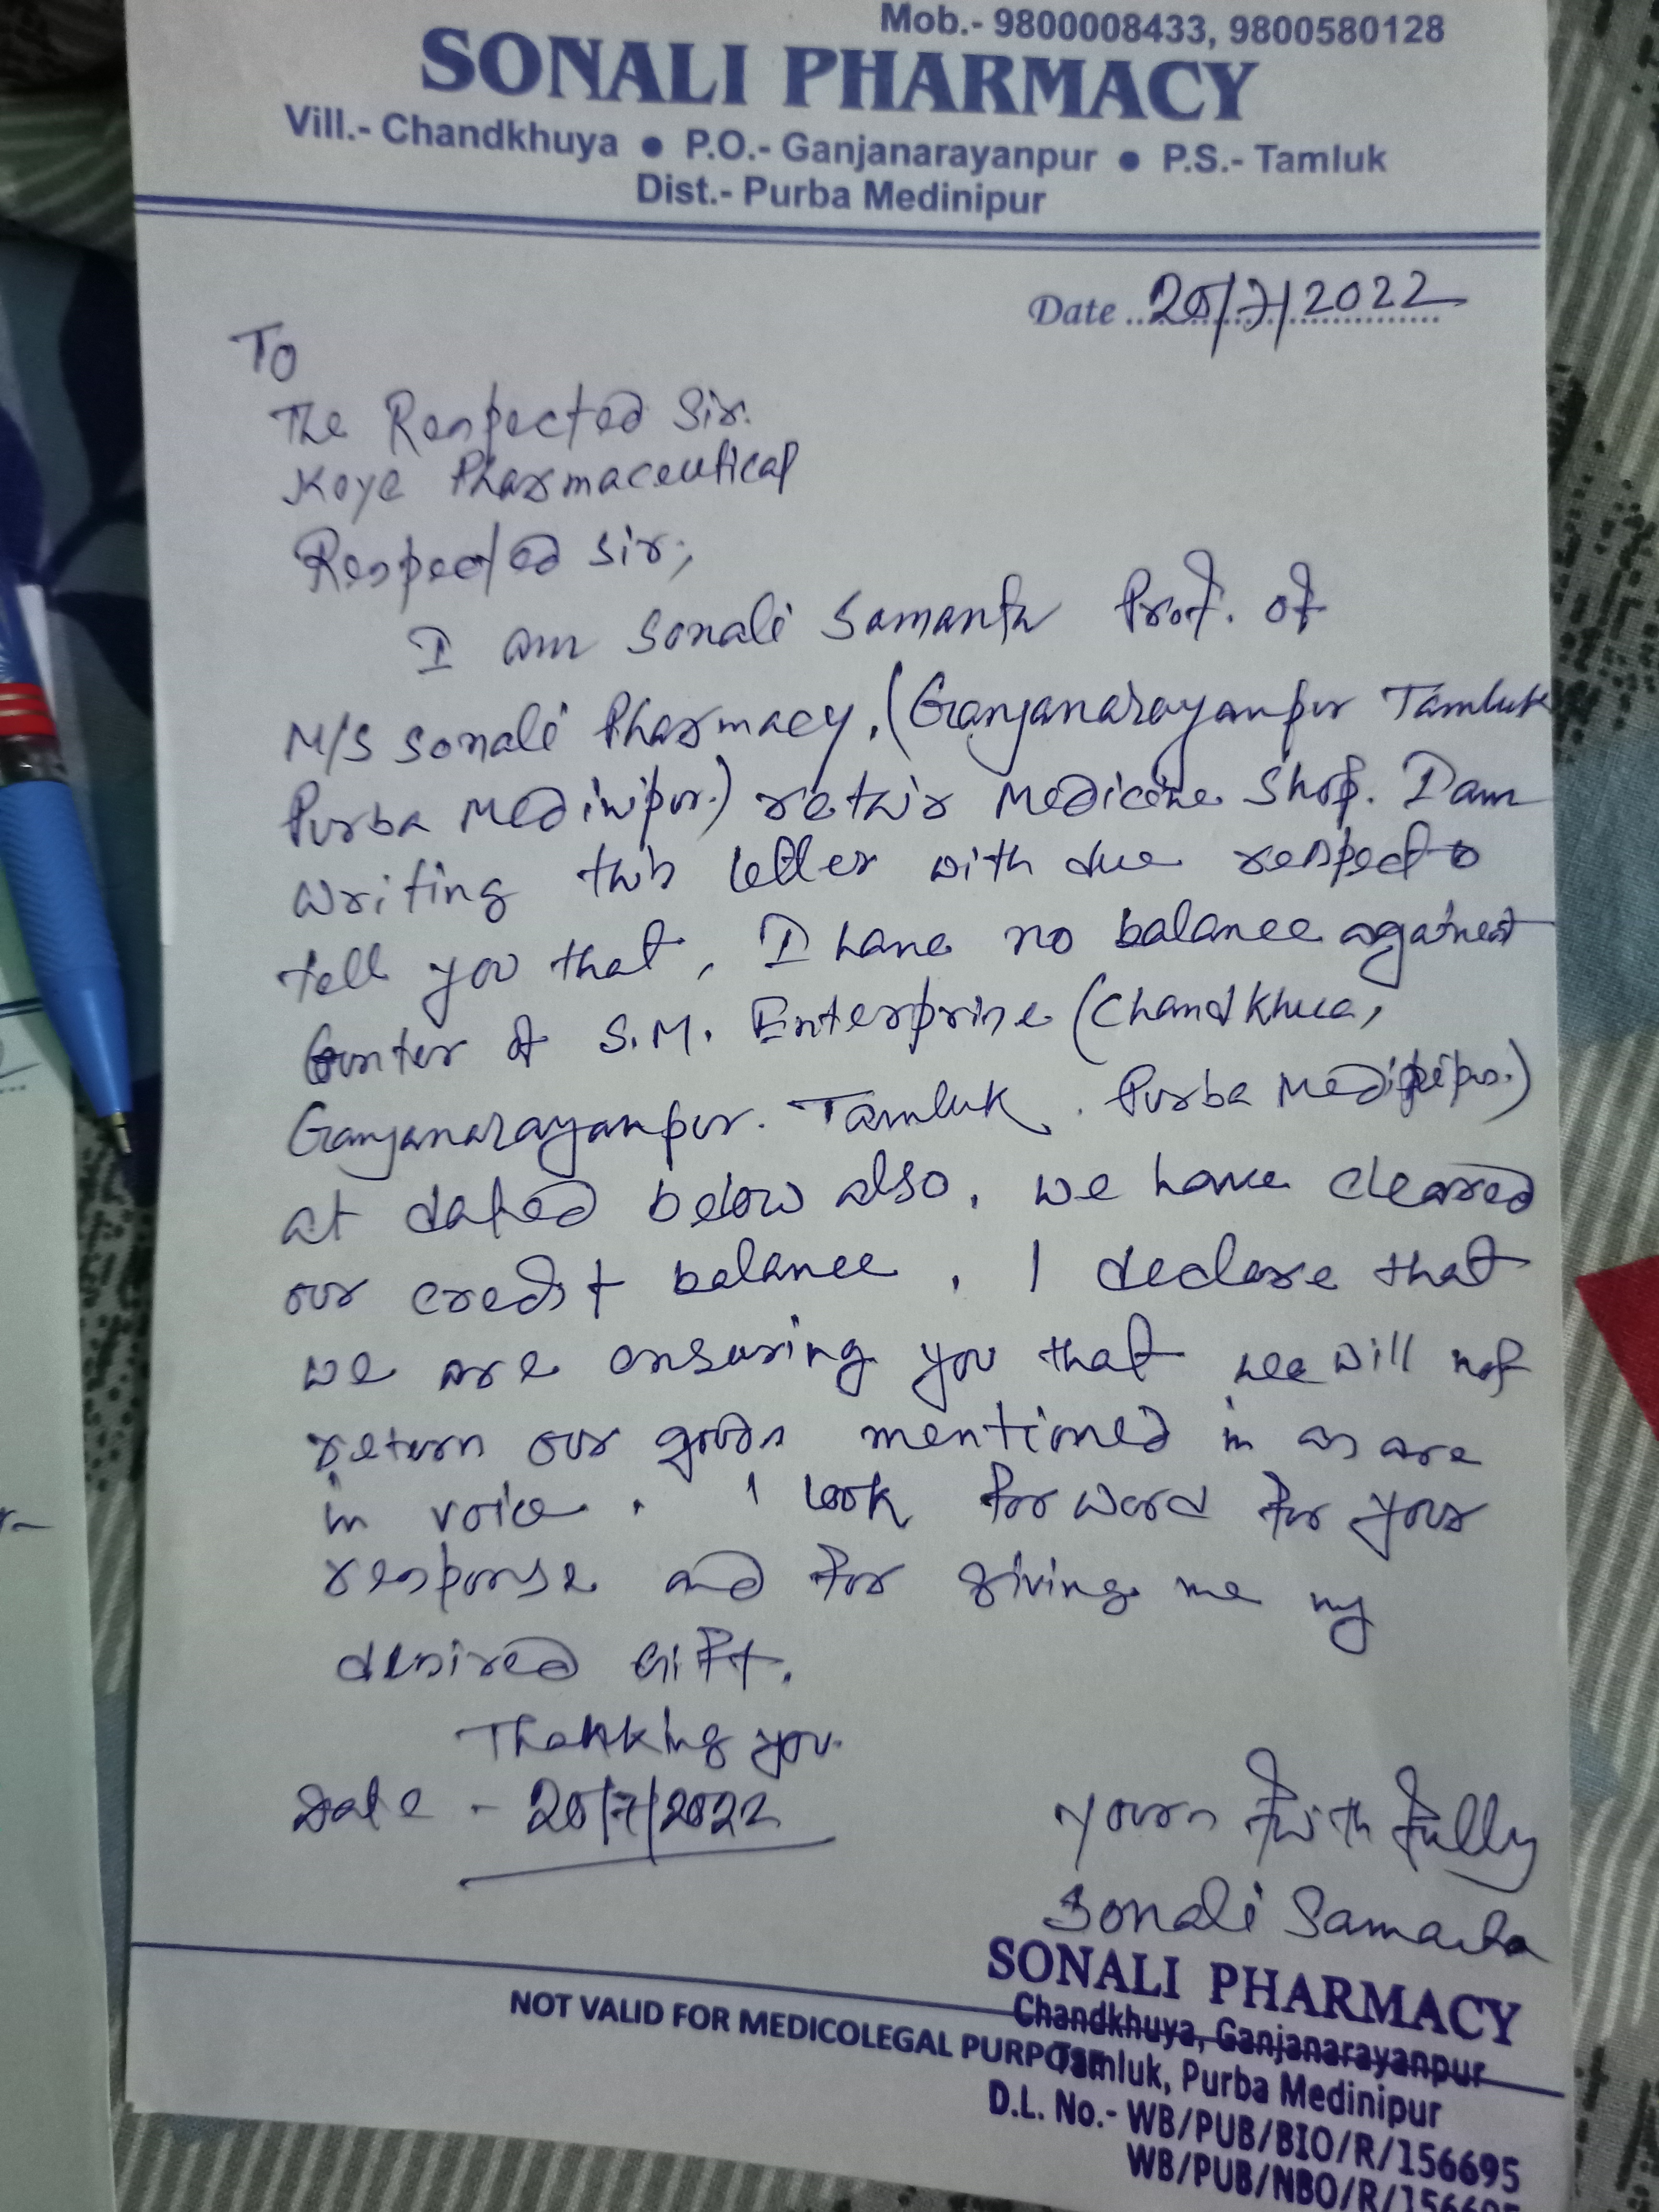 Mob.- 9800008433, 9800580128
SONALI PHARMACY
Vill.- Chandkhuya ● P.O.- Ganjanarayanpur ● P.S.- Tamluk
Dist.- Purba Medinipur
Date 20/7/2022
To
The Respected Sir.
Koye Pharmaceutical
Respected sir,
I am Sonali Samanta Prof. of
M/S Sonali Pharmacy, (Ganjanarayanpur Tamluk
Purba Medinipur.) Medicine Shop. I am
writing this letter with due respect to
tell you that, I have no balance against
of S.M. Enterprise (Chandkhua,
Ganjanarayanpur. Tamluk. Purba Medinipur.)
at dated below also, we have cleared
our credit balance, I declare that
we are ensuring you that we will not
return our goods mentioned in as are
in voice. I look for word for your
response and for giving me my
desired Gift.
Thankking you.
Date - 20/7/2022
yours fwith fully
Sonali Samanta
SONALI PHARMACY
Chandkhuya, Ganjanarayanpur
NOT VALID FOR MEDICOLEGAL PURPOSE
Tamluk, Purba Medinipur
D.L. No.- WB/PUB/BIO/R/156695
WB/PUB/NBO/R/156695